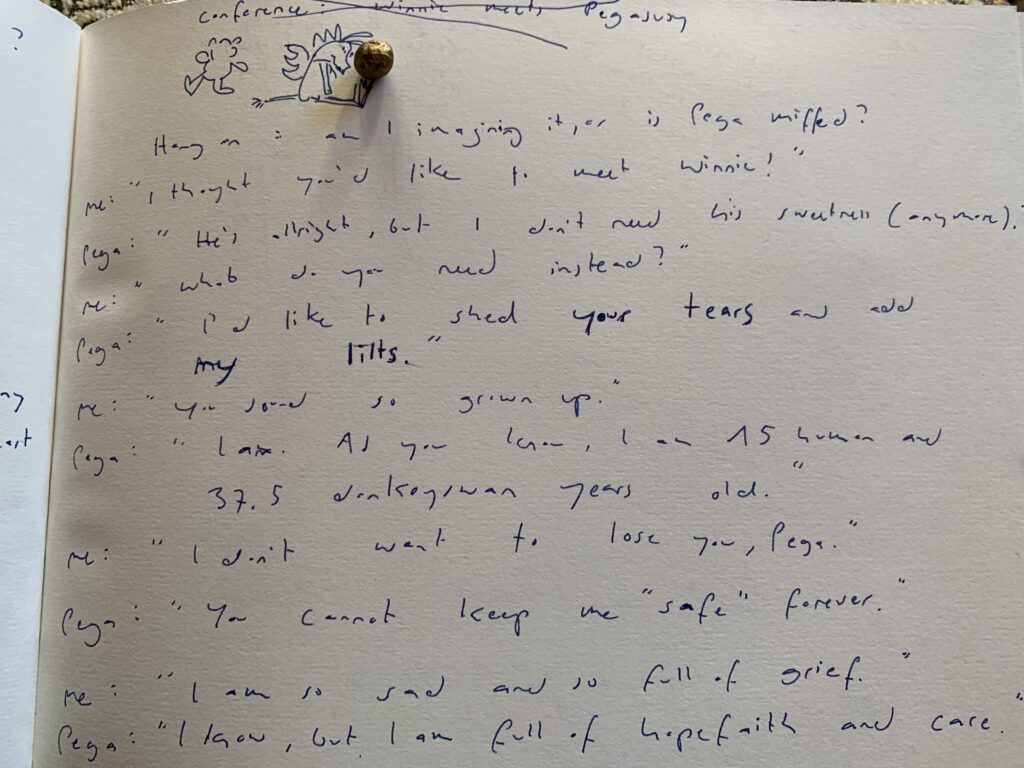 ?
conference: Winnie meets Pegasusy
Hang on: am I imagining it, or is Pega miffed?
me: "I thought you'd like to meet Winnie!"
Pega: "He's allright, but I don't need his sweetness (anymore)."
me: "what do you need instead?"
Pega: "I'd like to shed your tears and add
my lilts."
me: "You sound so grown up."
Pega: "I am. As you know, I am 15 human and
37.5 donkeyswan years old."
me: "I don't want to lose you, Pega."
Pega: "You cannot keep me "safe" forever."
me: "I am so sad and so full of grief."
Pega: "I know, but I am full of hopefaith and care."